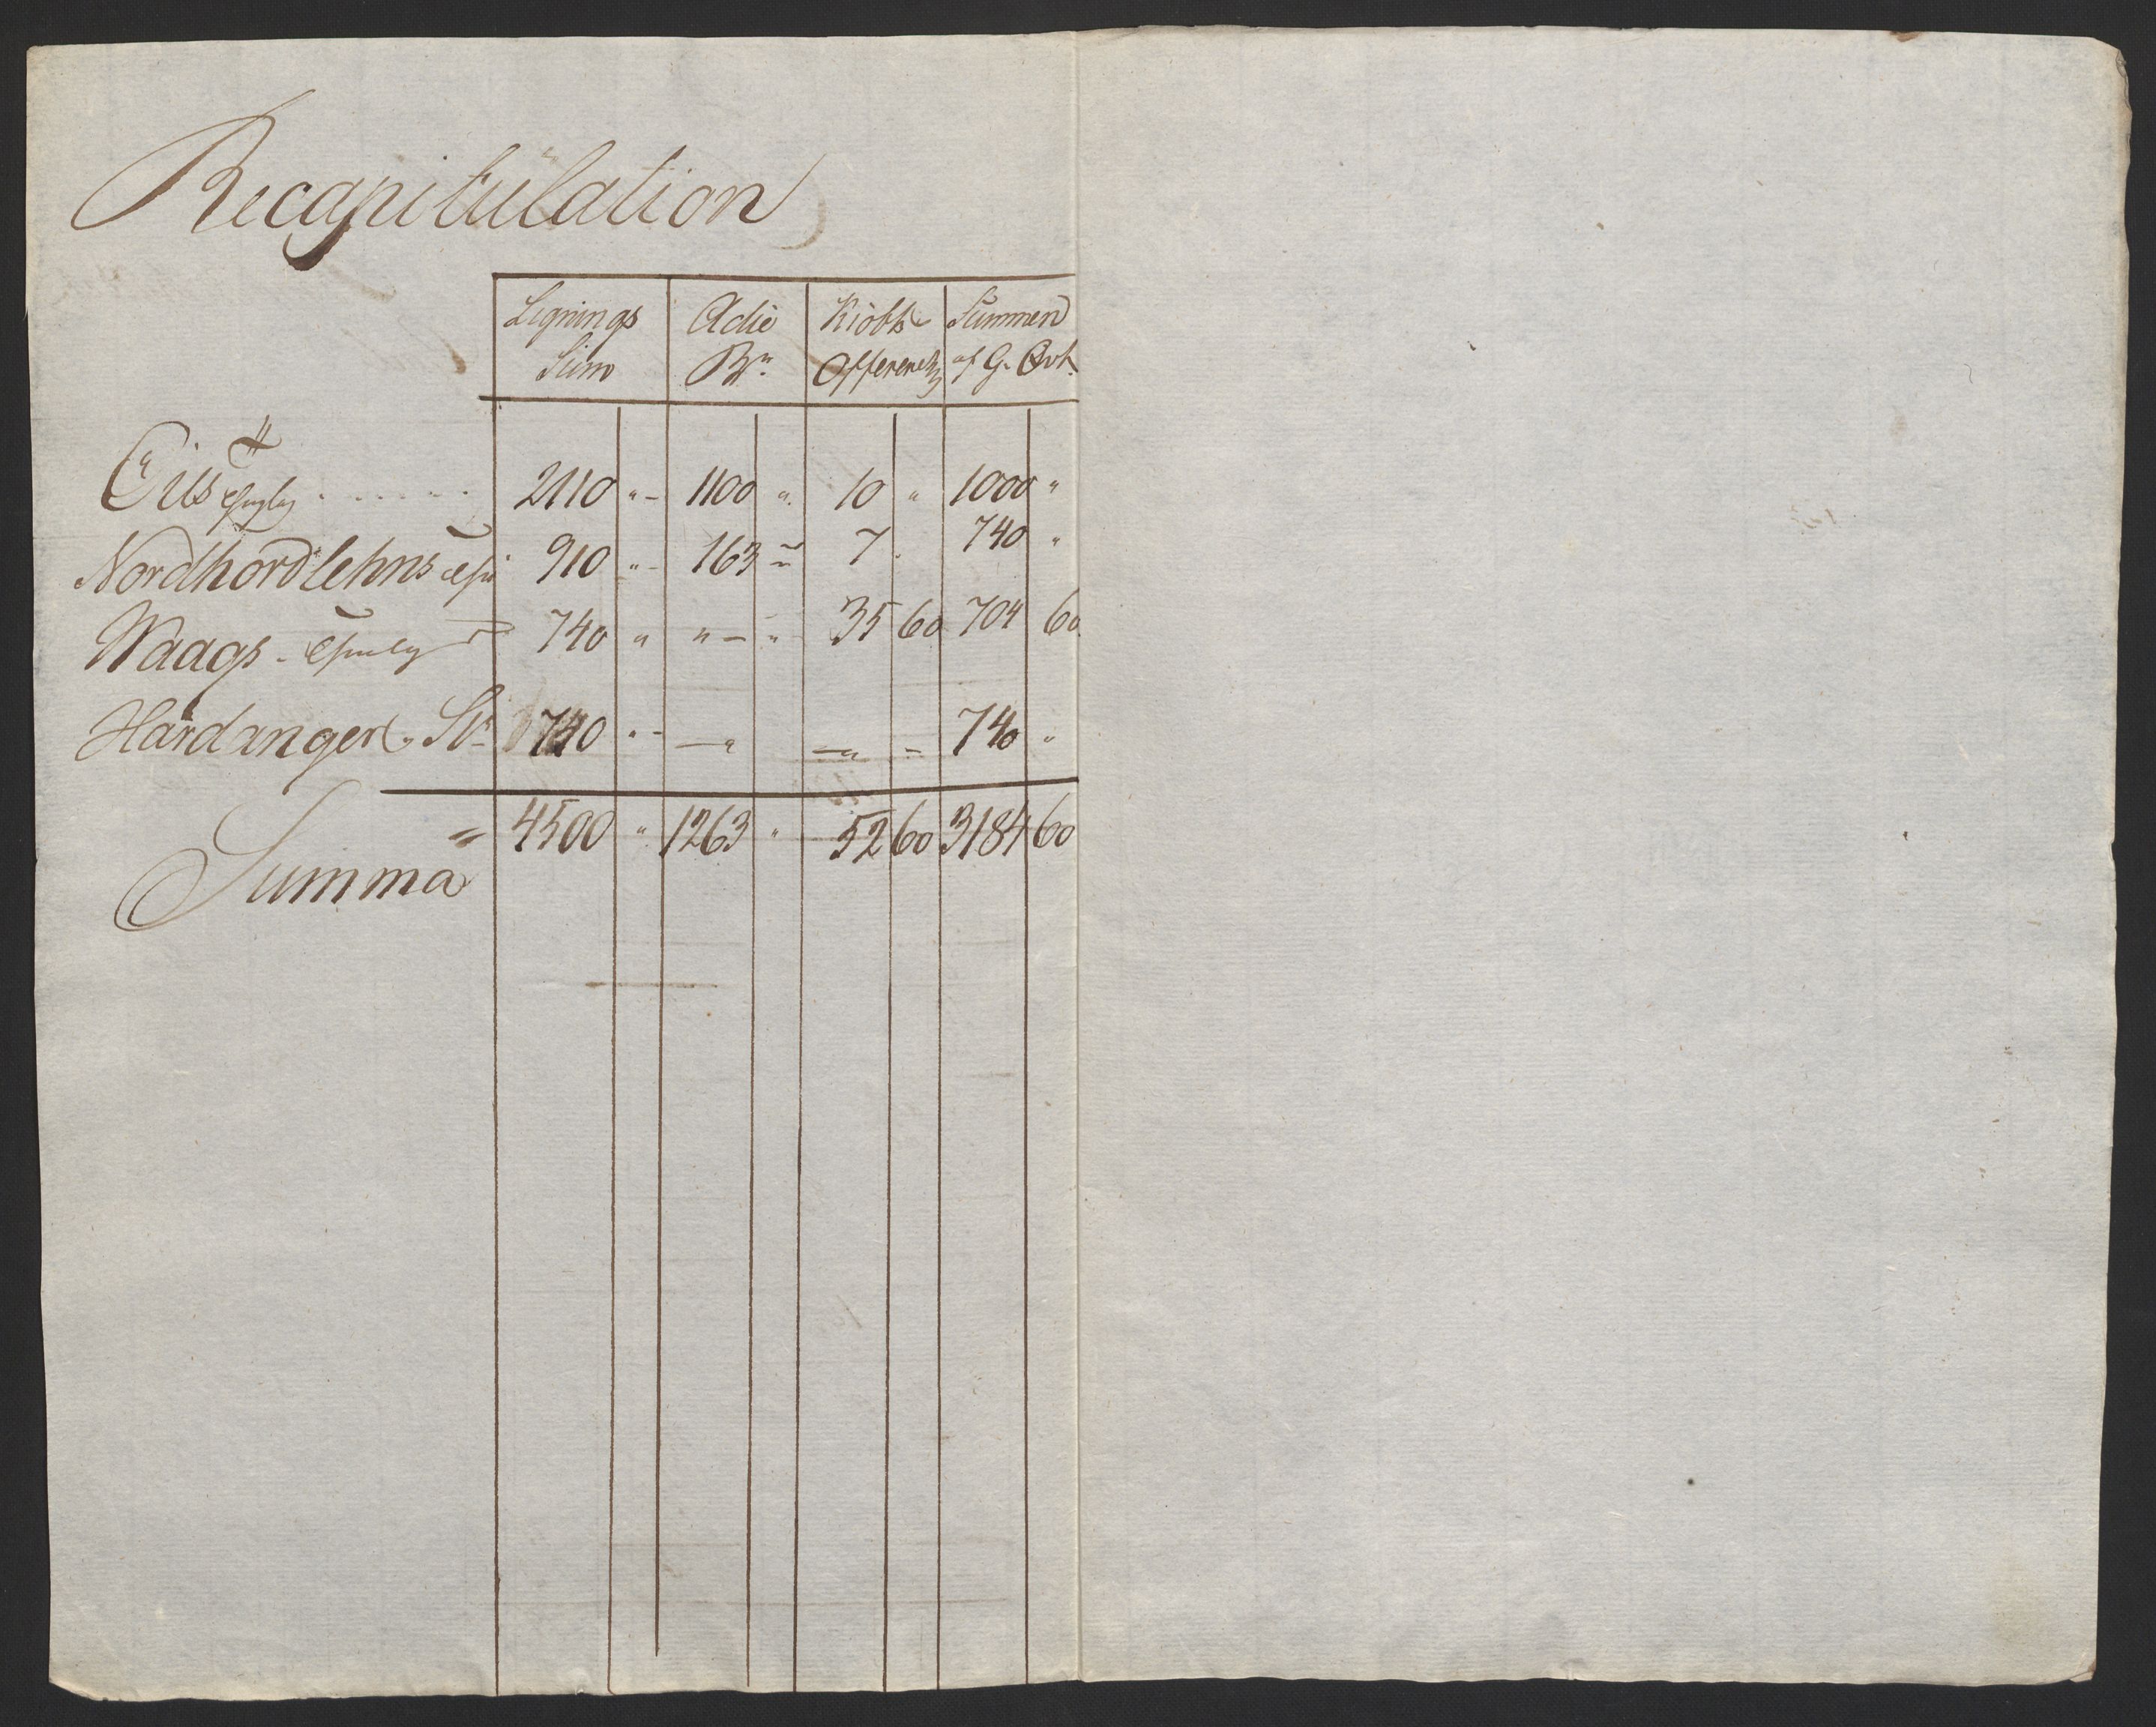 Recapitulation
Lignings Sum | Actie Br. | Kiøbs Ofference | Summen af G. Qvt.
Eits . . . . . . 2110 " - 1100 " 10 " 1000 "
Nordhordlehns 910 " - 163 = 7 . 740 "
Waags - 740 " " - " 35 60 704 60
Hardanger St 740 " - — " — " = 740 "
= 4500 " 1263 " 52 60 3184 60
Summa